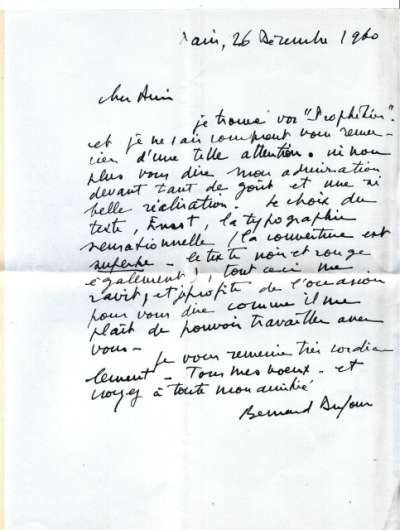 Paris, 26 Décembre 1960
cher Ami
je trouve vos "Prophéties".
et je ne sais comment vous remer-
cier d'une telle attention. ni non
plus vous dire mon admiration
devant tant de goût et une si
belle réalisation. Le choix du
texte, Ernst, la typographie
sensationnelle (la couverture est
superbe - le texte noir et rouge
également), tout ceci me
ravit, et j'profite de l'occasion
pour vous dire comme il me
plaît de pouvoir travailler avec
vous-
Je vous remercie très cordia-
lement - Tous mes voeux - et
croyez à toute mon amitié
Bernard Dufour